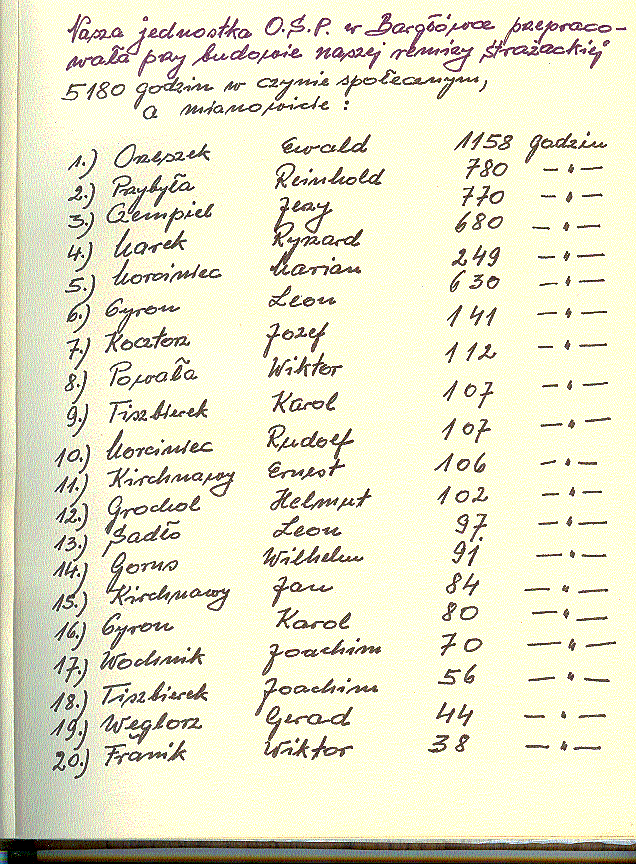 Nasza jednostka O.S.P. w Bargłówce przepraco-
wała przy budowie naszej remizy strażackiej
5180 godzin w czynie społecznym,
a mianowicie :
1.) Orzeszek Ewald 1158 godzin
2.) Przybyła Reinhold 780 — " —
3.) Czempiel Jerzy 770 — " —
4.) Marek Ryszard 680 — " —
5.) Morciniec Marian 249 — " —
6.) Cyron Leon 630 — " —
7.) Kocztorz Jozef 141 — " —
8.) Powała Wiktor 112 — " —
9.) Tiszbierek Karol 107 — " —
10.) Morciniec Rudolf 107 — " —
11.) Kirchnawy Ernest 106 — " —
12.) Grochol Helmut 102 — " —
13.) Sadło Leon 97 — " —
14.) Gorus Wilhelm 91 — " —
15.) Kirchnawy Jan 84 — " —
16.) Cyron Karol 80 — " —
17.) Wochnik Joachim 70 — " —
18.) Tiszbierek Joachim 56 — " —
19.) Węglorz Gerad 44 — " —
20.) Franik Wiktor 38 — " —